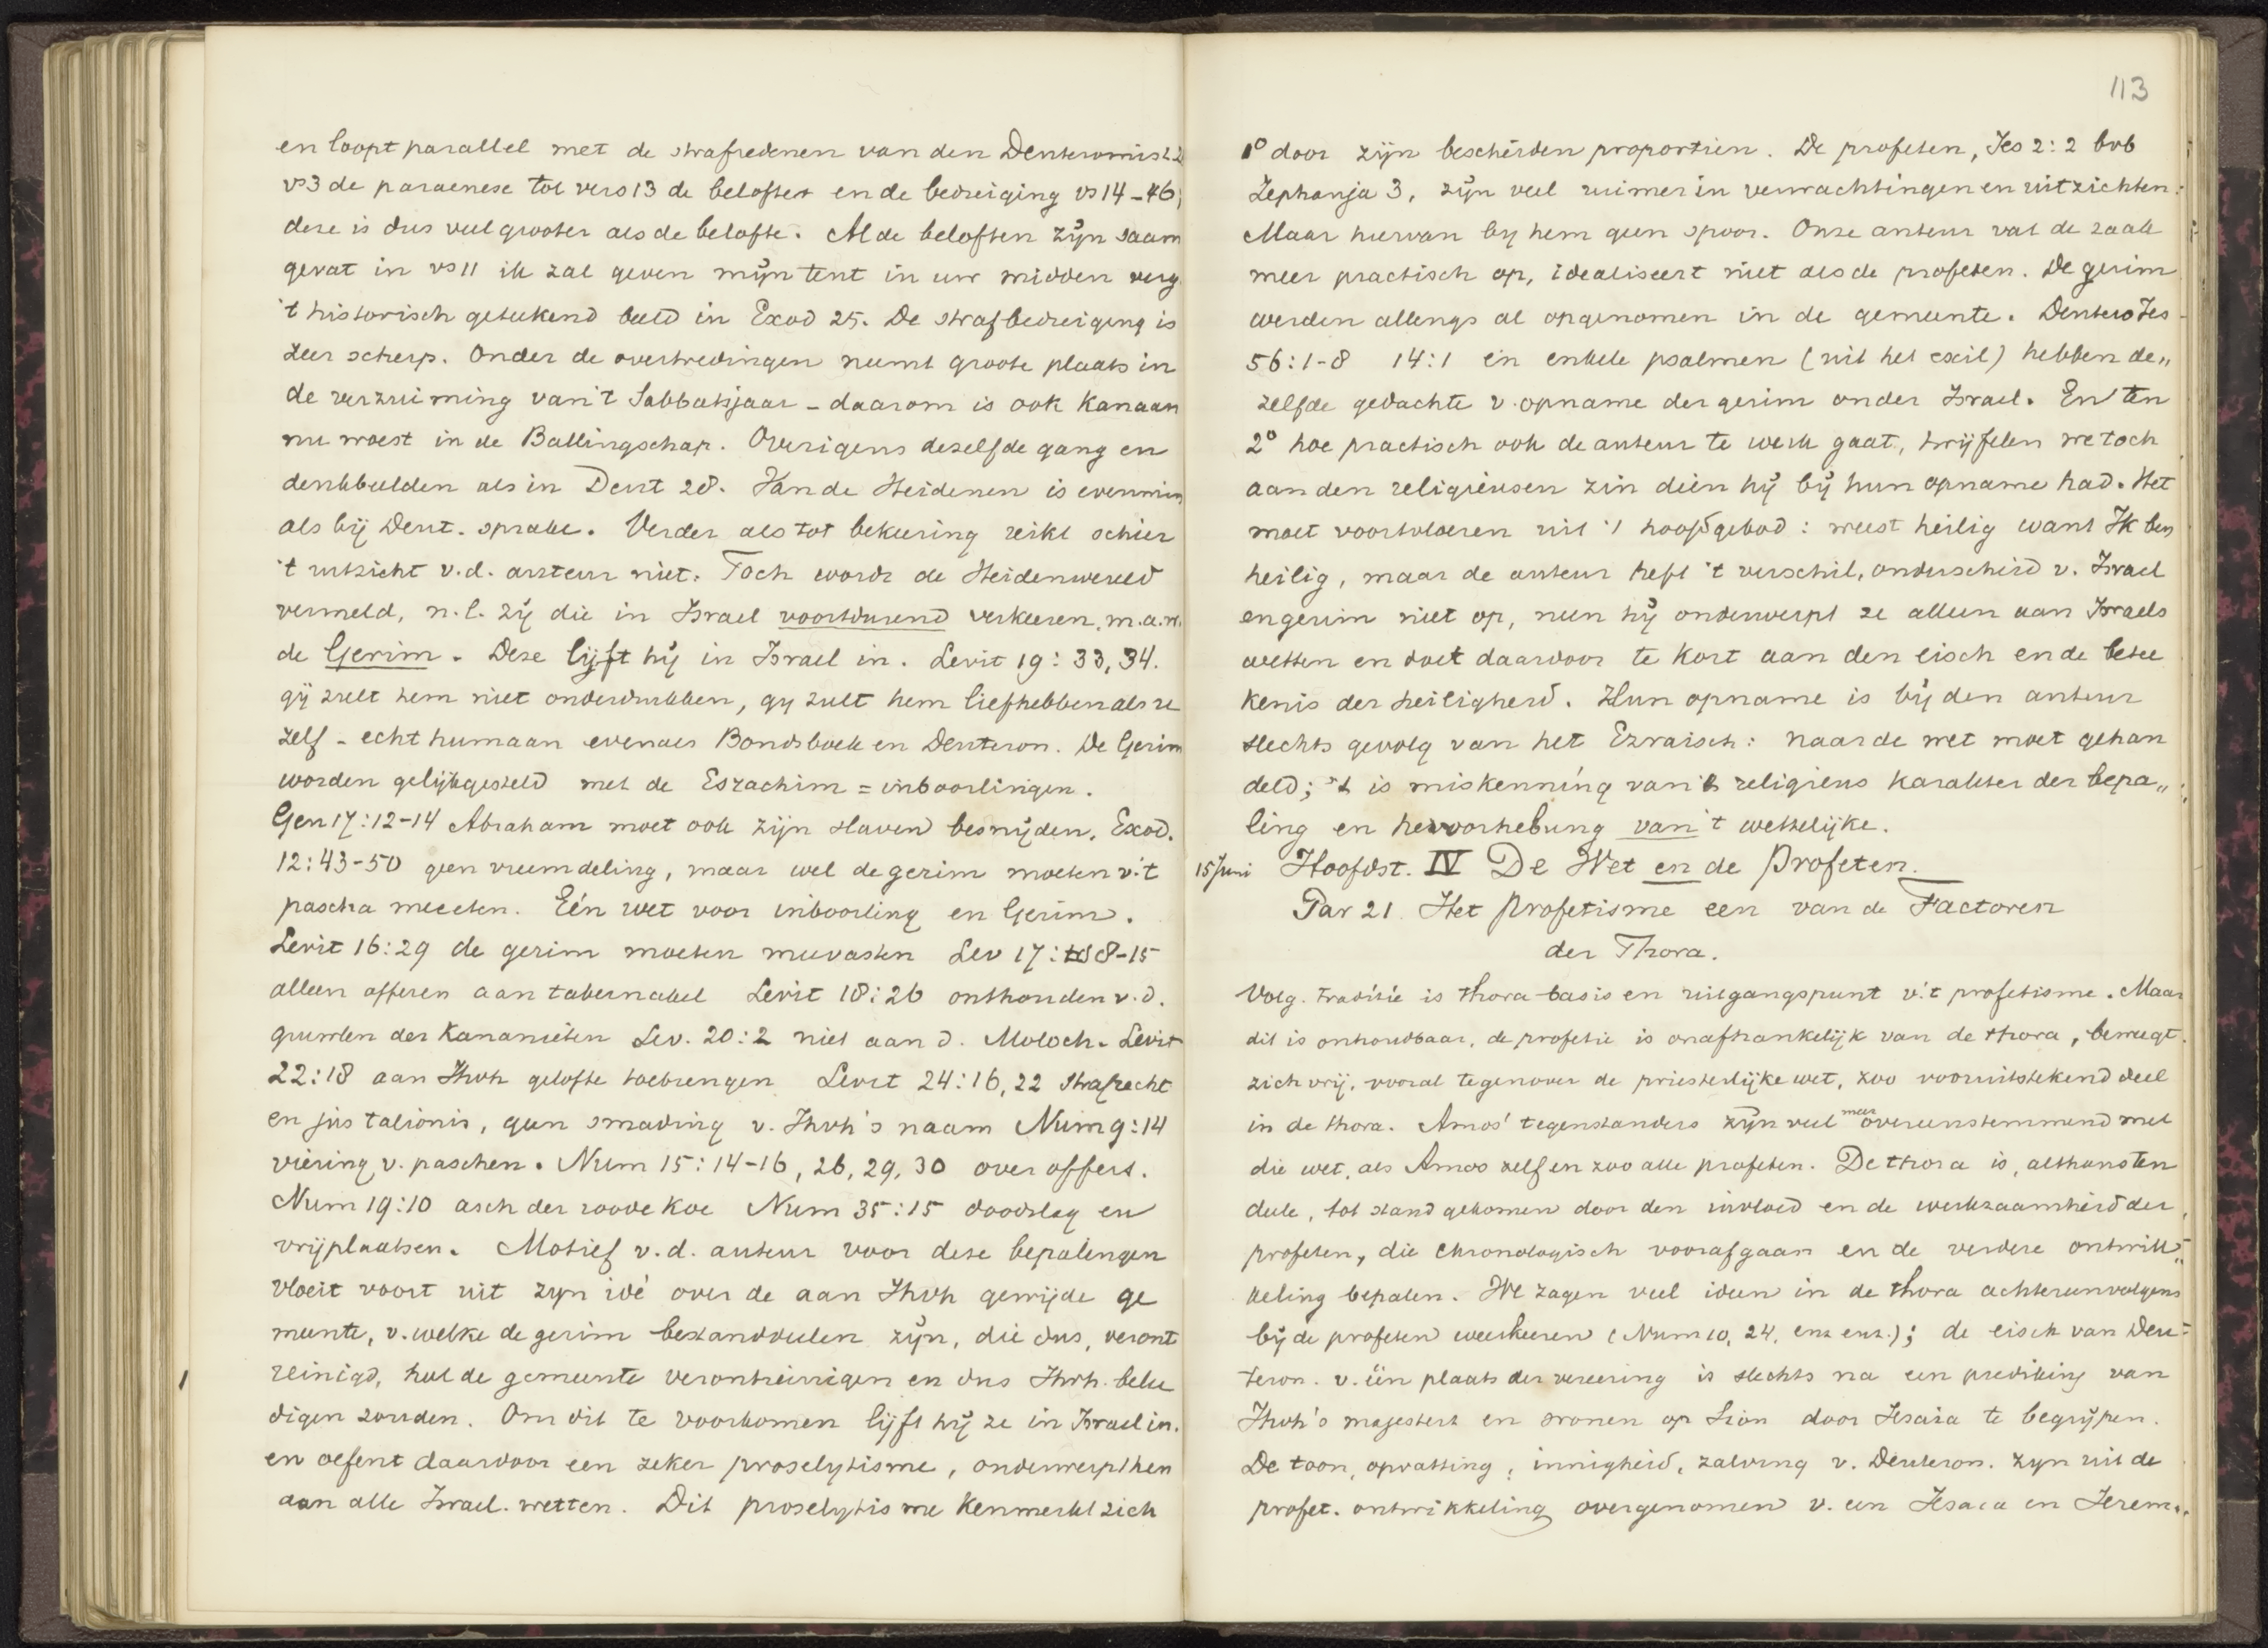 en loopt parallel met de strafredenen van den Deuteromist 2
vs3 de paraenese tot vers 13 de beloften en de bedreiging vs 14-46,
deze is dus veel grooter als de belofte. Al de beloften zijn saam
gevat in vs 11 ik zal geven mijn tent in uw midden verg.
't historisch geteekend beeld in Exod 25. De strafbedreiging is
zeer scherp. Onder de overtredingen neemt groote plaats in
de verzuiming van 't Sabbatsjaar - daarom is ook Kanaan
nu woest in de Ballingschap. Overigens dezelfde gang en
denkbeelden als in Deut 28. Van de Heidenen is evenmin
als bij Deut. sprake. Verder als tot bekeering reikt schier
't uitzicht v.d. auteur niet. Toch wordt de Heidenwereld
vermeld, n.l. zij die in Israel voortdurend verkeeren, m.a.w.
de Gerim. Deze lijft hij in Israel in. Levit 19: 33, 34.
gij zult hem niet onderdrukken, gy zult hem liefhebben als u
zelf - echt humaan evenals Bondsboek en Deuteron. De Gerim
worden gelijkgesteld met de Eszachim = inboorlingen.
Gen 17:12-14 Abraham moet ook zijn slaven besnijden, Exod.
12:43-50 geen vreemdeling, maar wel de gerim moeten v.'t
pascha meeeten. Eén wet voor inboorling en Gerim.
Levit 16:29 de gerim moeten meevasten Lev 17: 8-15
alleen offeren aan tabernakel Levit 18:26 onthouden v.d.
gruwlen der Kananieten Lev. 20:2 niet aan d. Moloch. Levit
22:18 aan Jhvh gelofte toebrengen Levit 24:16,22 strafrecht
en jus talionis, geen smading v. Jhvh's naam Num 9:14
viering v. paschen. Num 15:14-16, 26, 29, 30 over offers.
Num 19:10 asch der roode koe Num 35:15 doodslag en
vrijplaatsen. Motief v.d. auteur voor deze bepalingen
vloeit voort uit zyn idé over de aan Jhvh gewijde ge
meente, v. welke de gerim bestanddeelen zijn, die dus, veront
reinigd, heel de gemeente verontreinigen en dus Jhvh. belee
digen zouden. Om dit te voorkomen lijft hij ze in Israel in.
en oefent daardoor een zeker proselytisme, onderwerpt hen
aan alle Israel. wetten. Dit proselytisme kenmerkt zich
113
1° door zijn bescheiden proportien. De profeten, Jes 2:2 bvb
Zephanja 3, zijn veel ruimer in verwachtingen en uitzichten:
Maar hiervan by hem geen spoor. Onze auteur vat de zaak
meer practisch op, idealiseert niet als de profeten. De gerim
werden allengs al opgenomen in de gemeente. Deutero Jes
56:1-8 14:1 en enkele psalmen (uit het exil) hebben de„
zelfde gedachte v. opname der gerim onder Israel. En ten
2° hoe practisch ook de auteur te werk gaat, twijfelen we toch
aan den religieusen zin dien hij bij hun opname had. Het
moet voortvloeien uit 't hoofdgebod: weest heilig want Ik ben
heilig, maar de auteur heft 't verschil, onderscheid v. Israel
en gerim niet op, neen hij onderwerpt ze alleen aan Israels
wetten en doet daardoor te kort aan den eisch en de betee
kenis der heiligheid. Hun opname is bij den auteur
slechts gevolg van het Ezraisch: naar de wet moet gehan
deld; 't is miskenning van 't religieus karakter der bepa„
ling en hervorhebung van 't wettelijke.
15 Juni Hoofdst. IV De Wet en de Profeten.
Par 21. Het profetisme een van de Factoren
der Thora.
Volg. traditie is thora basis en uitgangspunt v.'t profetisme. Maar
dit is onhoudbaar, de profetie is onafhankelijk van de thora, beweegt
zich vrij, vooral tegenover de priesterlijke wet, zoo vooruitstekend deel
in de thora. Amos' tegenstanders zijn veel meer overeenstemmend met
die wet, als Amos zelf en zoo alle profeten. De thora is, althans ten
deele, tot stand gekomen door den invloed en de werkzaamheid der
profeten, die chronologisch voorafgaan en de verdere ontwik„
keling bepalen. We zagen veel ideen in de thora achtereenvolgens
bij de profeten weerkeeren (Num 10, 24, enz enz.); de eisch van Deu=
teron. v. één plaats der vereering is slechts na een prediking van
Jhvh's majesteit en wonen op Sion door Jesaia te begrijpen.
De toon, opvatting, innigheid, zalving v. Deuteron. zyn uit de
profet. ontwikkeling overgenomen v. een Jesaia en Jerem..